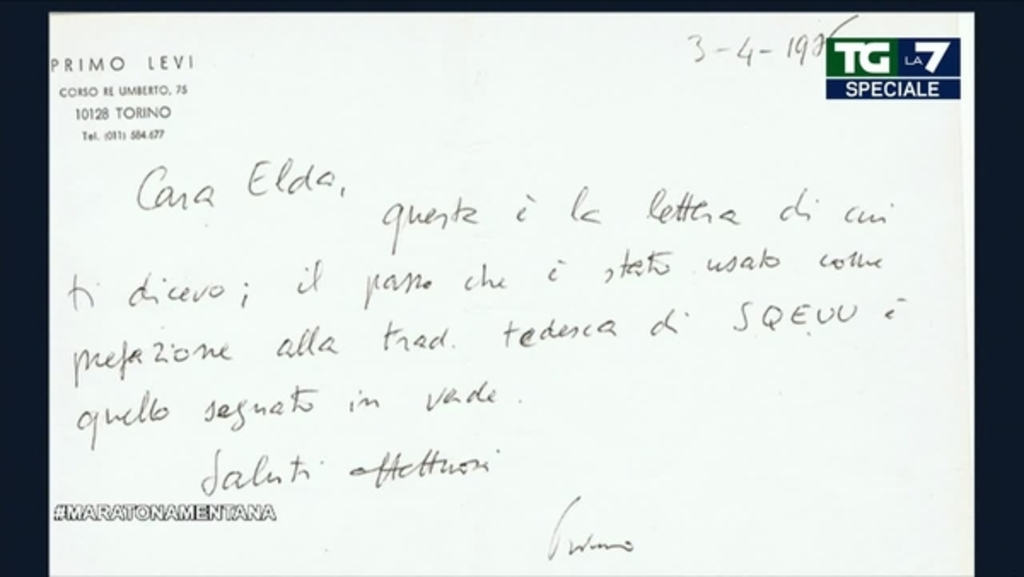 PRIMO LEVI
CORSO RE UMBERTO, 75
10128 TORINO
Tel. (011) 584.677
3-4-19
TG LA 7
SPECIALE
Cara Elda,
questa è la lettera di cui
ti dicevo; il passo che è stato usato come
prefazione alla trad. tedesca di SQEUU è
quello segnato in verde.
Saluti affettuosi
#MARATONAMENTANA
Primo